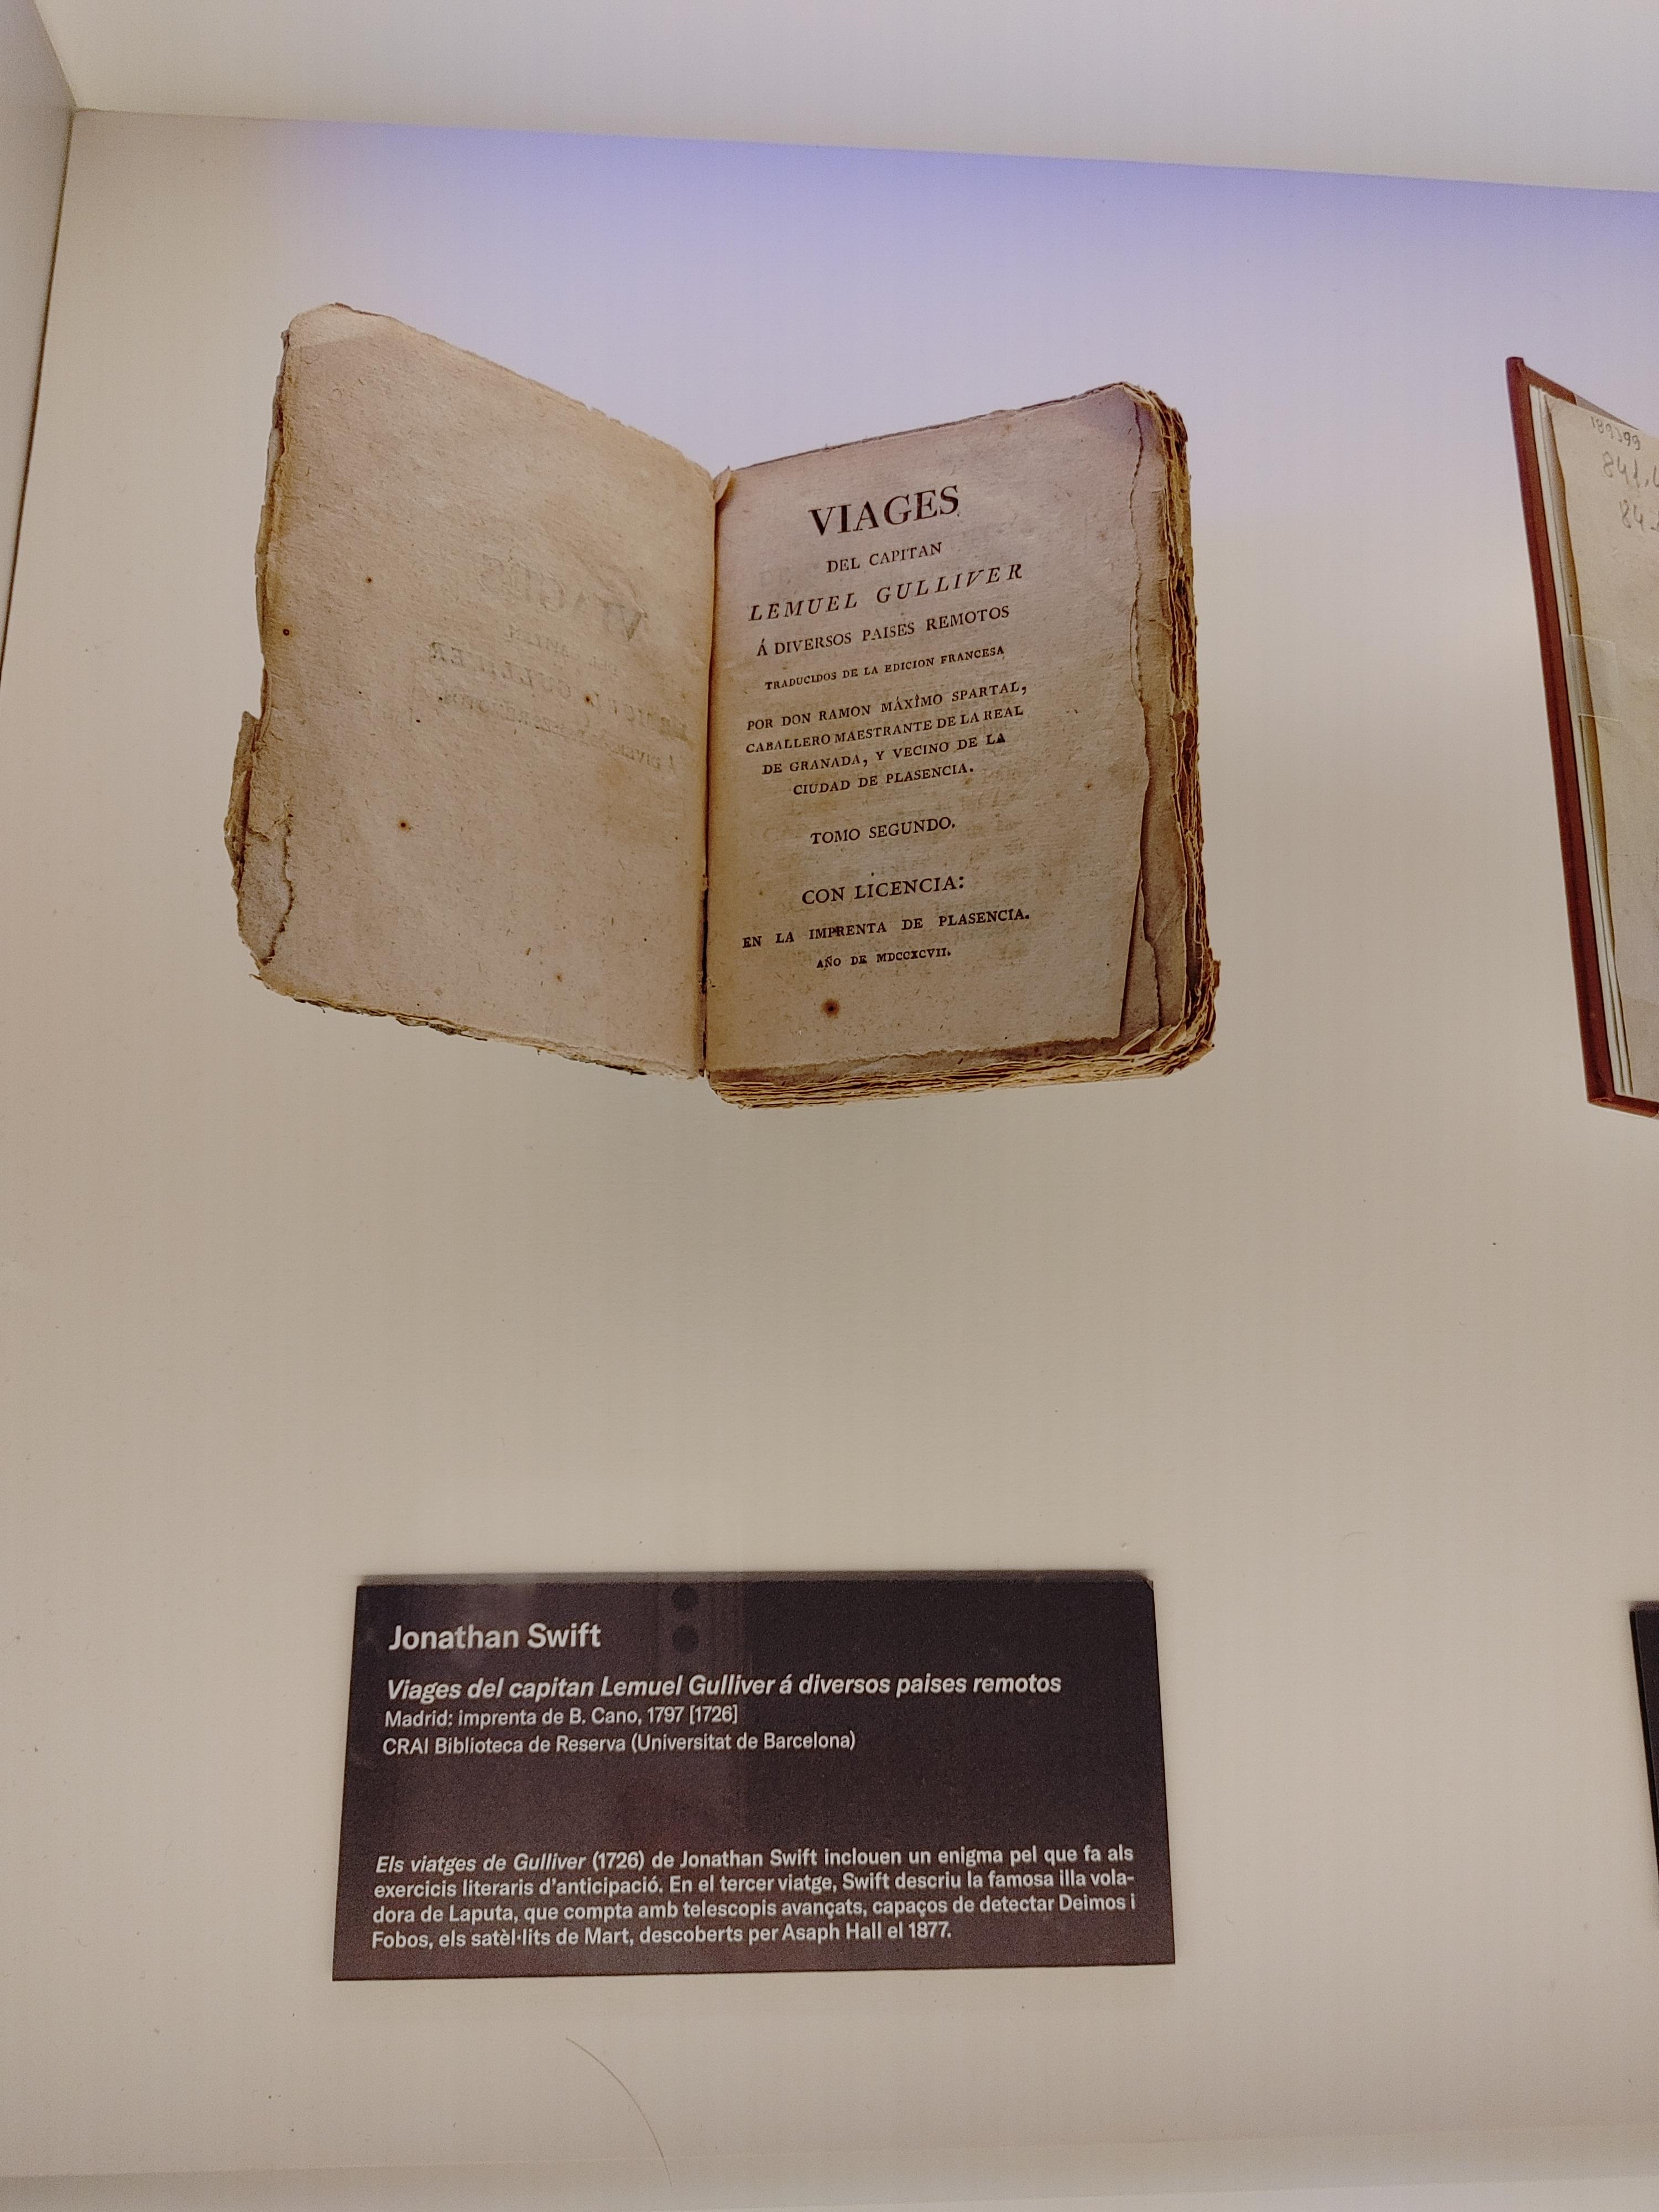 VIAGES
DEL CAPITAN
LEMUEL GULLIVER
Á DIVERSOS PAISES REMOTOS
TRADUCIDOS DE LA EDICION FRANCESA
POR DON RAMON MÁXÎMO SPARTAL,
CABALLERO MAESTRANTE DE LA REAL
DE GRANADA, Y VECINO DE LA
CIUDAD DE PLASENCIA.
TOMO SEGUNDO.
CON LICENCIA:
EN LA IMPRENTA DE PLASENCIA.
AÑO DE MDCCXCVII.
189399
841.
84-
Jonathan Swift
Viages del capitan Lemuel Gulliver á diversos paises remotos
Madrid: imprenta de B. Cano, 1797 [1726]
CRAI Biblioteca de Reserva (Universitat de Barcelona)
Els viatges de Gulliver (1726) de Jonathan Swift inclouen un enigma pel que fa als
exercicis literaris d'anticipació. En el tercer viatge, Swift descriu la famosa illa vola-
dora de Laputa, que compta amb telescopis avançats, capaços de detectar Deimos i
Fobos, els satèl·lits de Mart, descoberts per Asaph Hall el 1877.